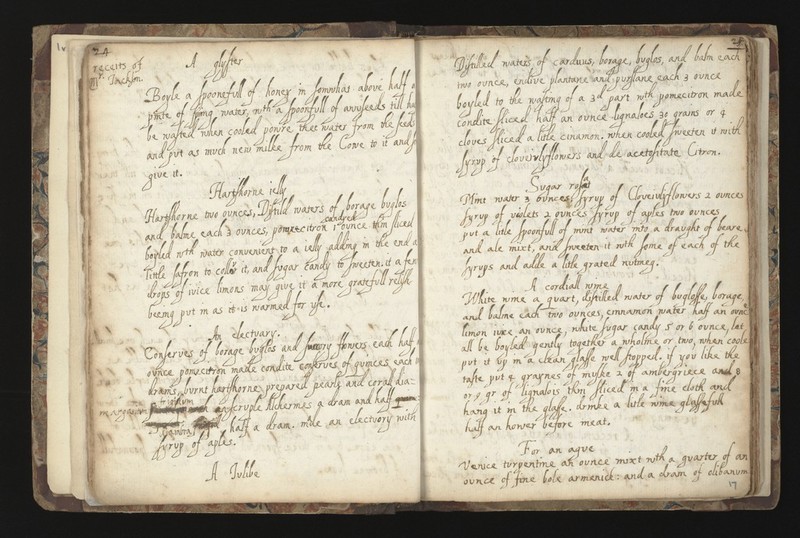 24
receits of
Mr. Jackson
A glyster
Boyle a spoonefull of honey in somwhat above half a
pinte of spring water, with a spoonfull of annyseeds till half
be wasted when cooled powre that water from the seeds
and put as much new milke from the Cowe to it and so
give it.
Hartshorne ielly
Hartshorne two ounces, Distill waters of borage buglos
and balme each 3 ounces, pomecitron candied 1 ounce thin sliced
boyled with water convenient to a ielly adding in the end a
little safron to collor it, and sugar candy to sweeten it a few
drops of iuice limons may give it a more gratefull relish
beeing put in as it is warmed for use.
An electuary.
Conserves of borage buglos and flowers each half
ounce pomecitron made condite conserves of quinces each
drams, burnt hartshorne prepared pearls and corall dia-
margariton frigidum scruple Alchermes a dram and half
half a dram. make an electuary with
syrup of aples.
A Julibe
25
Distilled waters of carduus, borage, buglos, and balm each
two ounce, endive plantane and purslane each 3 ounce
boyled to the wasting of a 3d part with pomecitron made
condite sliced half an ounce lignaloes 30 grains or 4
cloves sliced a litle cinamon. when cooled sweeten it with
syrup of cloveiulyflowers and de acetositate Citron.
Sugar roset
Mint water 3 ounces, syrup of Cloveiulyflowers 2 ounces
syrup of violets 2 ounces syrup of aples two ounces
put a litle spoonfull of mint water into a draught of beare
and ale mixt, and sweeten it with some of each of the
syrups and adde a litle grated nutmeg.
A cordiall wine
White wine a quart, distilled water of buglosse, borage,
and balme each two ounces, cinnamon water half an ounce
limon iuice an ounce, white sugar candy 5 or 6 ounce, let
all be boyled gently together a whoile or two, when coole
put it up in a clean glasse well stopped. if you like the
taste put 4 graynes of muske 2 of ambergriece and 8
or 9 gr of lignalois thin sliced in a fine cloth and
hang it in the glasse. drinke a litle wine glassefull
half an hower before meat.
For an ague
Venice turpentine an ounce mixt with a quarter of an
ounce of fine bole armenick: and a dram of olibanum
17